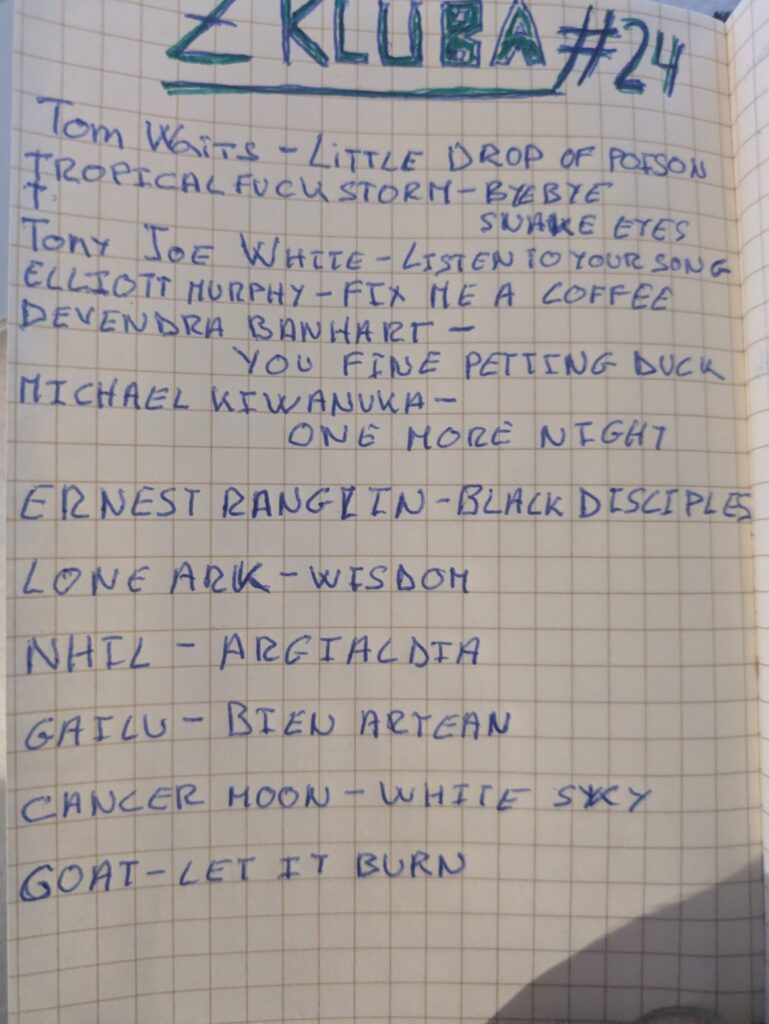 Z KLUBA #24
Tom WAiTS - LiTTLE DROP OF POISON
TROPICAL FUCK STORM - BYEBYE
T.
SNAKE EYES
TONY JOE WHITE - LISTEN TO YOUR SONG
ELLIOTT MURPHY - FIX ME A COFFEE
DEVENDRA BANHART -
YOU FINE PETTING DUCK
MICHAEL KIWANUKA -
ONE MORE NIGHT
ERNEST RANGLIN - BLACK DISCIPLES
LONE ARK - WISDOM
NHIL - ARGIALDIA
GAILU - BIEN ARTEAN
CANCER MOON - WHITE SKY
GOAT - LET IT BURN